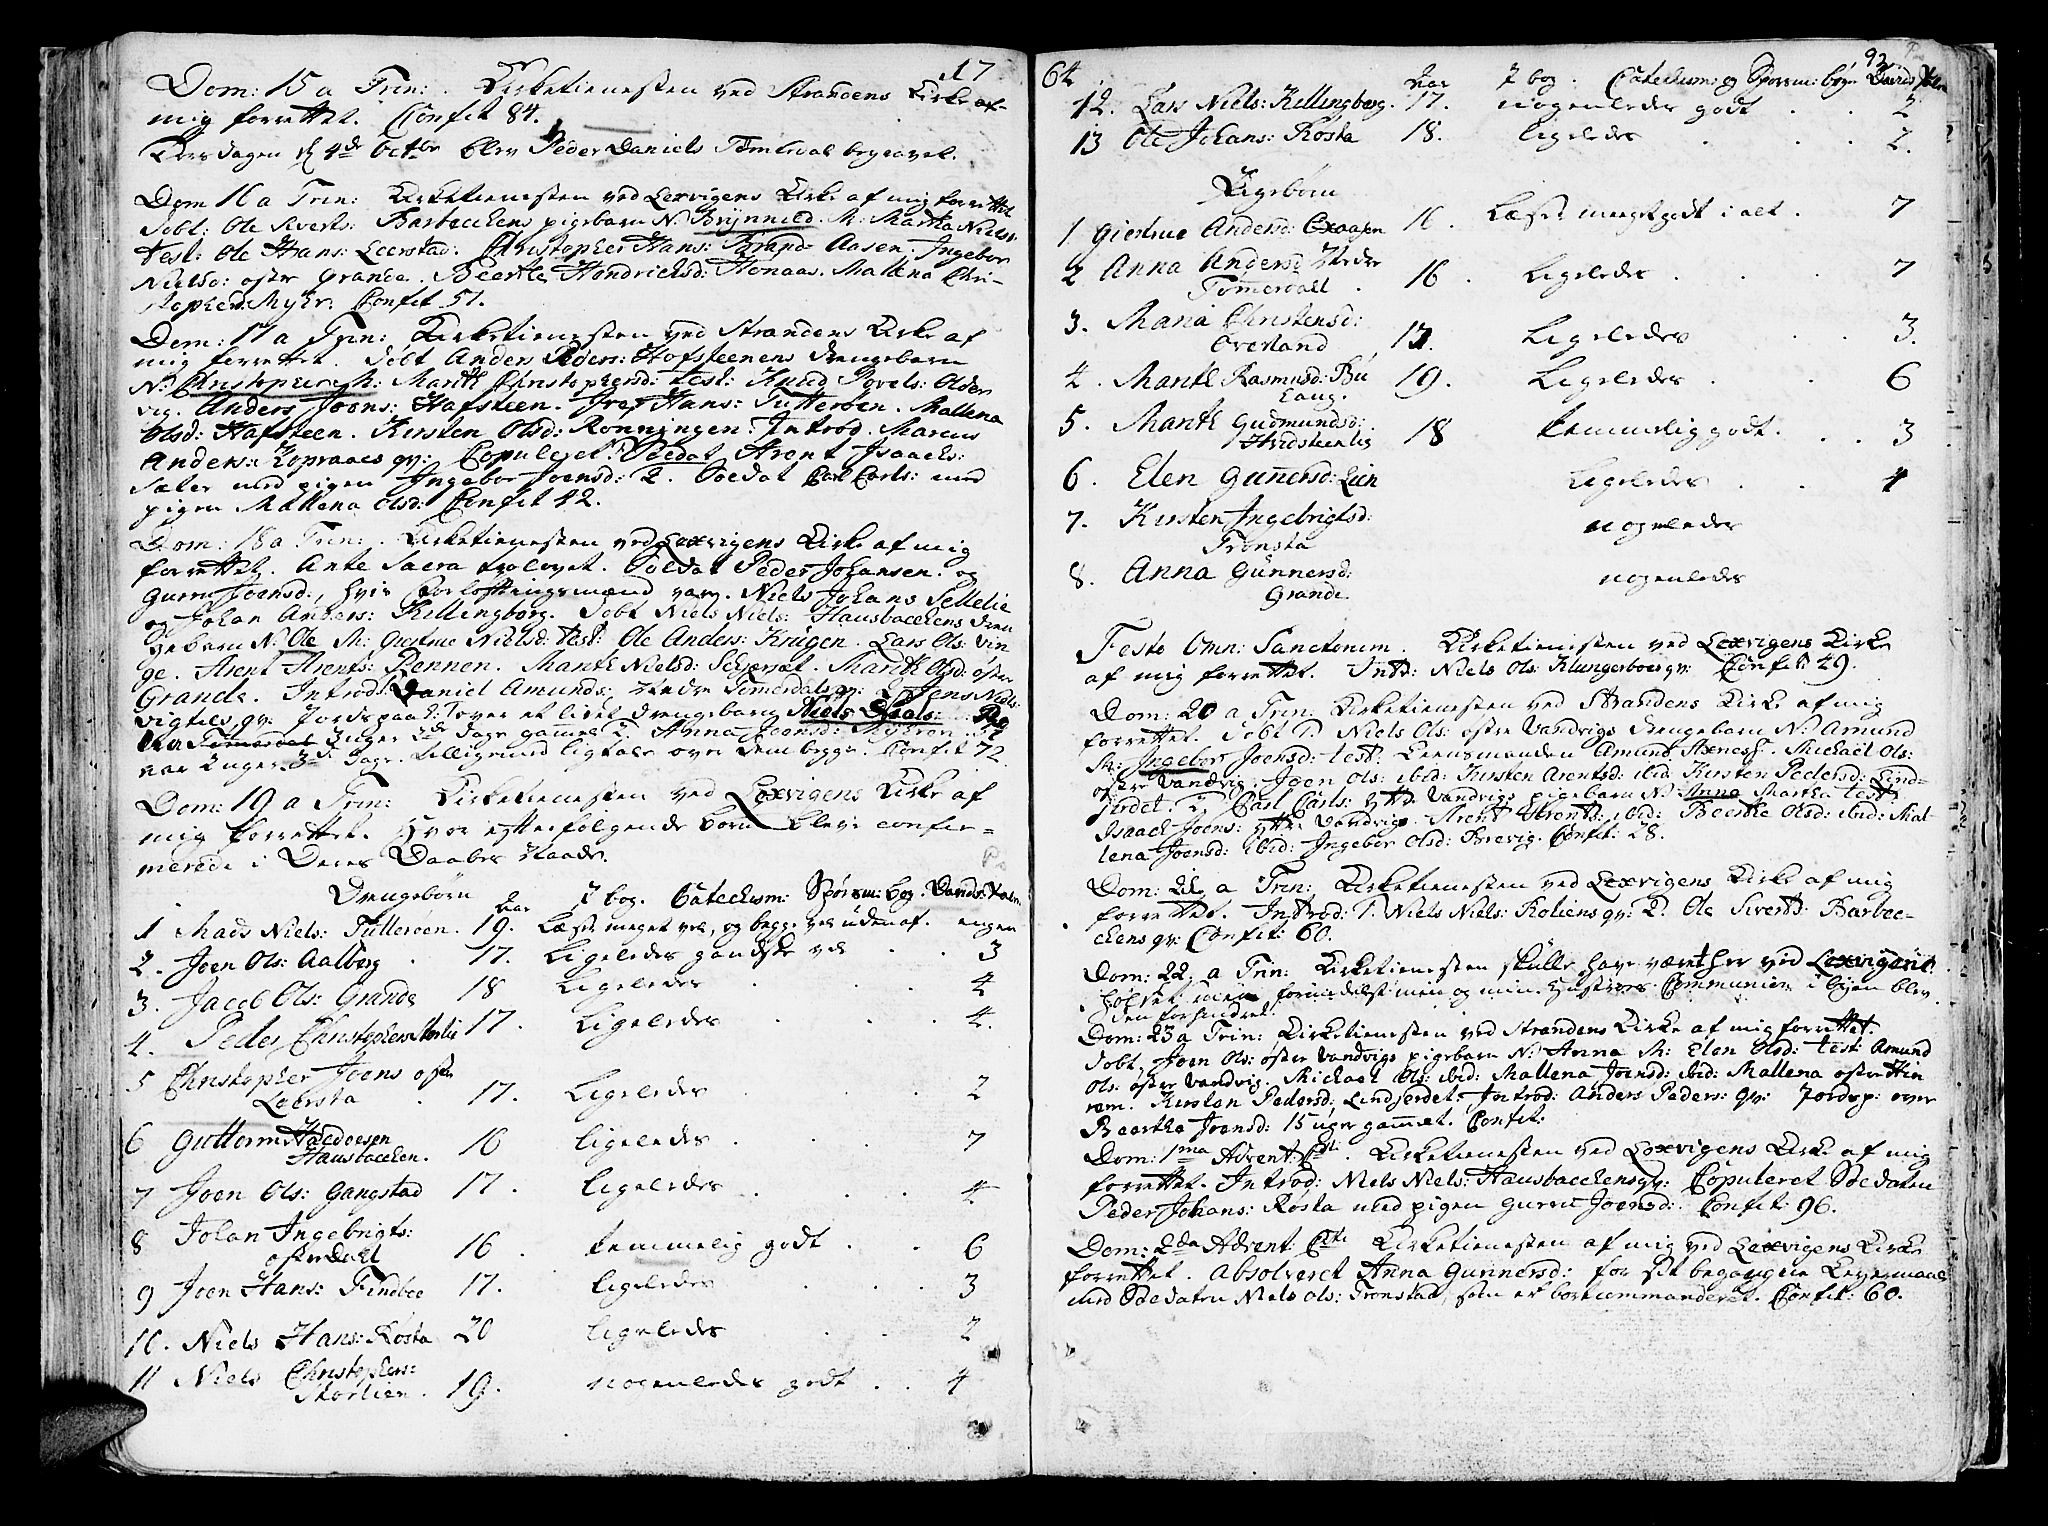 17
Dom: 15 a Trin: . Kirketienesten ved Strandens Kirke af
mig forrettet. Confit 84.
Løverdagen d 4de Octbr blev Peder Daniels Tømerdal begravet.
Dom 16 a Trin: Kirketienesten ved Lexvigens Kirke af mig forrettet
Døbt: Ole Siverts: Barbacchens pigebarn N. Brÿnnild. M: Martha Nielsd:
Test: Ole Hans: Leerstad. Christopher Hans: Brand Aasen. Ingebor
Nielsd: østr Grande. Beerte Hendrichsd: Honaas. Mallena Chri-
stophersd: Myhr. Confit 51.
Dom: 17 a Trin: Kirketienesten ved Strandens Kirke af
mig forrettet. Døbt Anders Peders: Hofsteenens drengebarn
N: Christopher M: Marit Christophersd: Test: Knud Povels: Older
vig. Anders Joens: Hafsteen. Hans: Tutterøen. Mallena
Olsd: Hafsteen. Kirsten Olsd: Rønningen: Introd. Marcus
Anders: Kopraaes qv: Copuleret: Soldat Arent Isaachs:
Sæter med pigen Ingebor Joensd: 2. Soldat Carl Carls: med
pigen Mallena Olsd: Confit 42.
Dom: 18 a Trin: . Kirketienesten ved Lexvigens Kirke af mig
forrettet. Ante Sacra trolovet. Soldat Peder Johansen og
Guru Joensd:, hvis Forlofningsmænd var. Niels Johans Sellelie
og Johan Anders: Killingberg. Døbt Niels Niels: Hausbacchens dren
gebarn N: Ole M: Giertrue Nielsd: Test: Ole Anders: Krügen. Lars Ols: Vin
ge. Arent Arents: Rennen. Marith Nielsd: Schjærsæt. Marith Olsd: øster
Grande. Introd: Daniel Amunds: Nedre Tømerdals qv: 2. Jens Niels:
Vigtels qv: Jordspaad: 1 over et lidet drengebarn Niels Niels:
Tømerdal 3 uger 2de Dage gamel 2. Anna Joensd: Myhren
var 2 uger 3 Dage. Ligtale over dem begge. Confit 72.
Dom: 19 a Trin: Kirketienesten ved Lexvigens Kirke af
mig forrettet. Hvor efterfølgende børn bleve confir=
merede i Deres Daabes Naade.
Drengebørn Aar I bog. Catechism: Spørsm: bog. Davids Psalm:
1 Mads Niels: Tutterøen. 19. Læser meget vel, og begge vel uden af. ingen
2. Joen Ols: Aalberg . 17. Ligeledes gandske vel . . 3
3. Jacob Ols: Grande 18 Ligeledes . . . 4
4. Peder Christophers Storlie 17. Ligeledes . . . 4.
5 Christopher Joens øster
Leersta . 17. Ligeledes . . . 2
6 Guttorm Haldoesen
Hausbacchen. 16 Ligeledes . . . 7
7 Joen Ols: Gangstad 17. Ligeledes . . . 4
8 Johan Ingebrigts:
østerdahl 16. temmelig godt . . 6
9 Joen Hans: Findboe 17. ligeledes . . . 3
10. Niels Hans: Røsta 20 ligeledes . . 2
11 Niels Christophers:
Storlien. 19. nogenledes godt . . 4
64 92
Aar I bog. Catechism: og Spørsm: bog. Davids Psalm
12. Lars Niels: Killingberg. 17. nogenledes godt . . 2
13 Ole Johans: Røsta 18. ligeledes . . . 2.
Pigebørn
1 Giertrue Andersd: Exaasen 16. Læser meget godt i alt . 7
2 Anna Andersd Nedre
Tømerdall . 16. Ligeledes . . . 7
3. Maria Christensd:
Overland 17. Ligeledes . . 3.
4. Marith Rasmusd: Bú
laug. 19. Ligeledes . . 6
5. Marith Gudmundsd:
Hvidsteenlie 18 temmelig godt. . . 3
6. Elen Gunersd: Lien Ligeledes . . 4
7. Kirsten Ingebrigtsd:
Trønsta nogenledes
8. Anna Gunnersd:
Grande. nogenledes
Festo Omn: Sanctorum. Kirketienesten ved Lexvigens Kirke
af mig forrettet. Intd: Niels Ols: Klungerboes qv: Confit: 49.
Dom: 20 a Trin: Kirketienesten ved Strandens Kirke af mig
forrettet. Døbt 1. Niels Ols: østre Vandvigs drengebarn N: Amund
M: Ingebor Joensd: test: Leensmanden Amund Axness. Michael Ols:
østre Vandvig. Joen Ols: ibid: Kirsten Arentsd: ibid: Kirsten Pedersd: Lind-
jerdet: 2. Carl Carls: ytt: Vandvigs pigebarn N: Anna Martha test:
Isaach Joens: ytt: Vandvig. Arent Arents: ibid: Beerthe Olsd: ibid: Mal-
lena Joensd: ibid: Ingebor Olsd: Brevig. Confit: 28.
Dom: 21 a Trin: Kirketienesten ved Lexvigens Kirke af mig
forrettet. Introd: 1. Niels Niels: Koliens qv: 2. Ole Siverts: Barbac-
chens qv: Confit: 60.
Dom: 22. a Trin: Kirketienesten skulle have været her ved Lexvigens
den forhindret.
Dom: 23 a Trin: Kirketienesten ved Strandens Kirke af mig forrettet.
Døbt, Joen Ols: østre Vandvigs pigebarn N: Anna M: Elen Olsd: test: Amund
Ols: østre Vandvig. Michael Ols: ibid: Mallena Joensd: ibid: Mallena østre Hin
rem. Kirsten Pedersd: Lindjerdet: Introd: Anders Peders: qv: Jordsp: over
Beartha Joensd: 15 uger gammel. Confit:
Dom: 1ma Advent: Xsti. Kirketienesten ved Lexvigens Kirke af mig
forrettet. Introd: Niels Niels: Hausbacchens qv: Copuleret Soldaten
Peder Johans: Røsta med pigen Guru Joensd: Confit: 96.
Dom: 2da Advent: Xsti Kirketienesten af mig ved Lexvigens Kirke
forrettet. Absolveret Anna Gunnersd: for sit begangne Leyermaal
med Soldaten Niels Ols: Trønstad, som er bortcommanderet. Confit: 60.